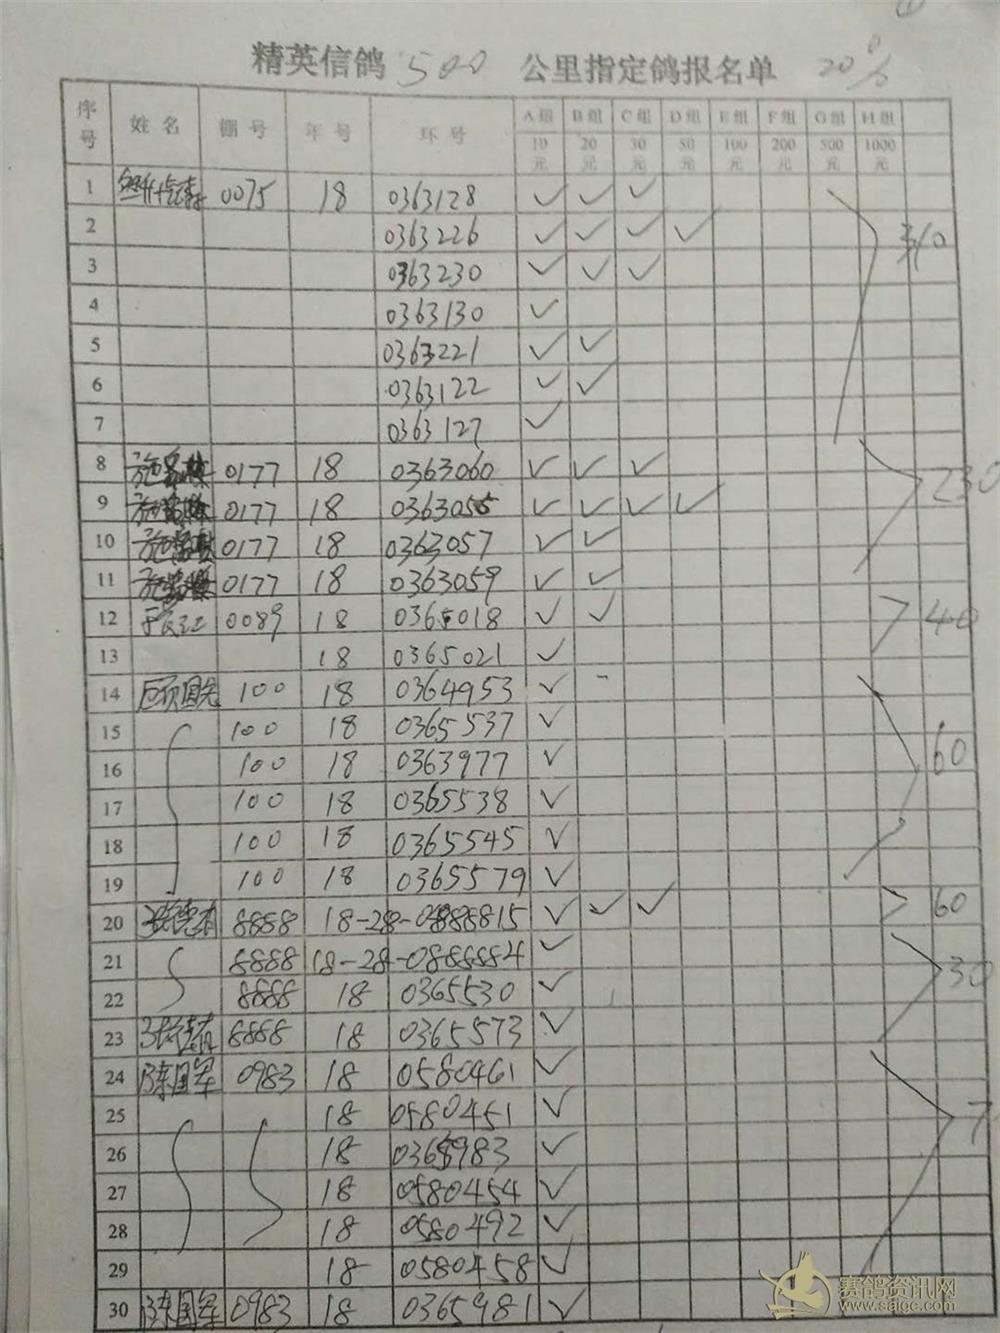 精英信鸽 500 公里指定鸽报名单 20%
序号 姓名 棚号 年号 环号 A组 B组 C组 D组 E组 F组 G组 H组
10元 20元 30元 50元 100元 200元 500元 1000元
1 0075 18 0363128 ✓ ✓ ✓
2 0363226 ✓ ✓ ✓ ✓ 310
3 0363230 ✓ ✓ ✓
4 0363130 ✓
5 0363221 ✓ ✓
6 0363122 ✓ ✓
7 0363127 ✓
8 0177 18 0363060 ✓ ✓ ✓ 230
9 0177 18 0363055 ✓ ✓ ✓ ✓
10 0177 18 0363057 ✓ ✓
11 0177 18 0363059 ✓ ✓
12 0089 18 0365018 ✓ ✓ 40
13 18 0365021 ✓
14 100 18 0364953 ✓
15 100 18 0365537 ✓
16 100 18 0363977 ✓ 60
17 100 18 0365538 ✓
18 100 18 0365545 ✓
19 100 18 0365579 ✓
20 8888 18-28-0888815 ✓ ✓ ✓ 60
21 8888 18-28-0888884 ✓
22 8888 18 0365530 ✓ 30
23 8888 18 0365573 ✓
24 陈国军 0983 18 0580461 ✓
25 18 0580451 ✓ 7
26 18 0365983 ✓
27 18 0580454 ✓
28 18 0580492 ✓
29 18 0580458 ✓
30 陈国军 0983 18 0365981 ✓
赛鸽资讯网
www.saigc.com